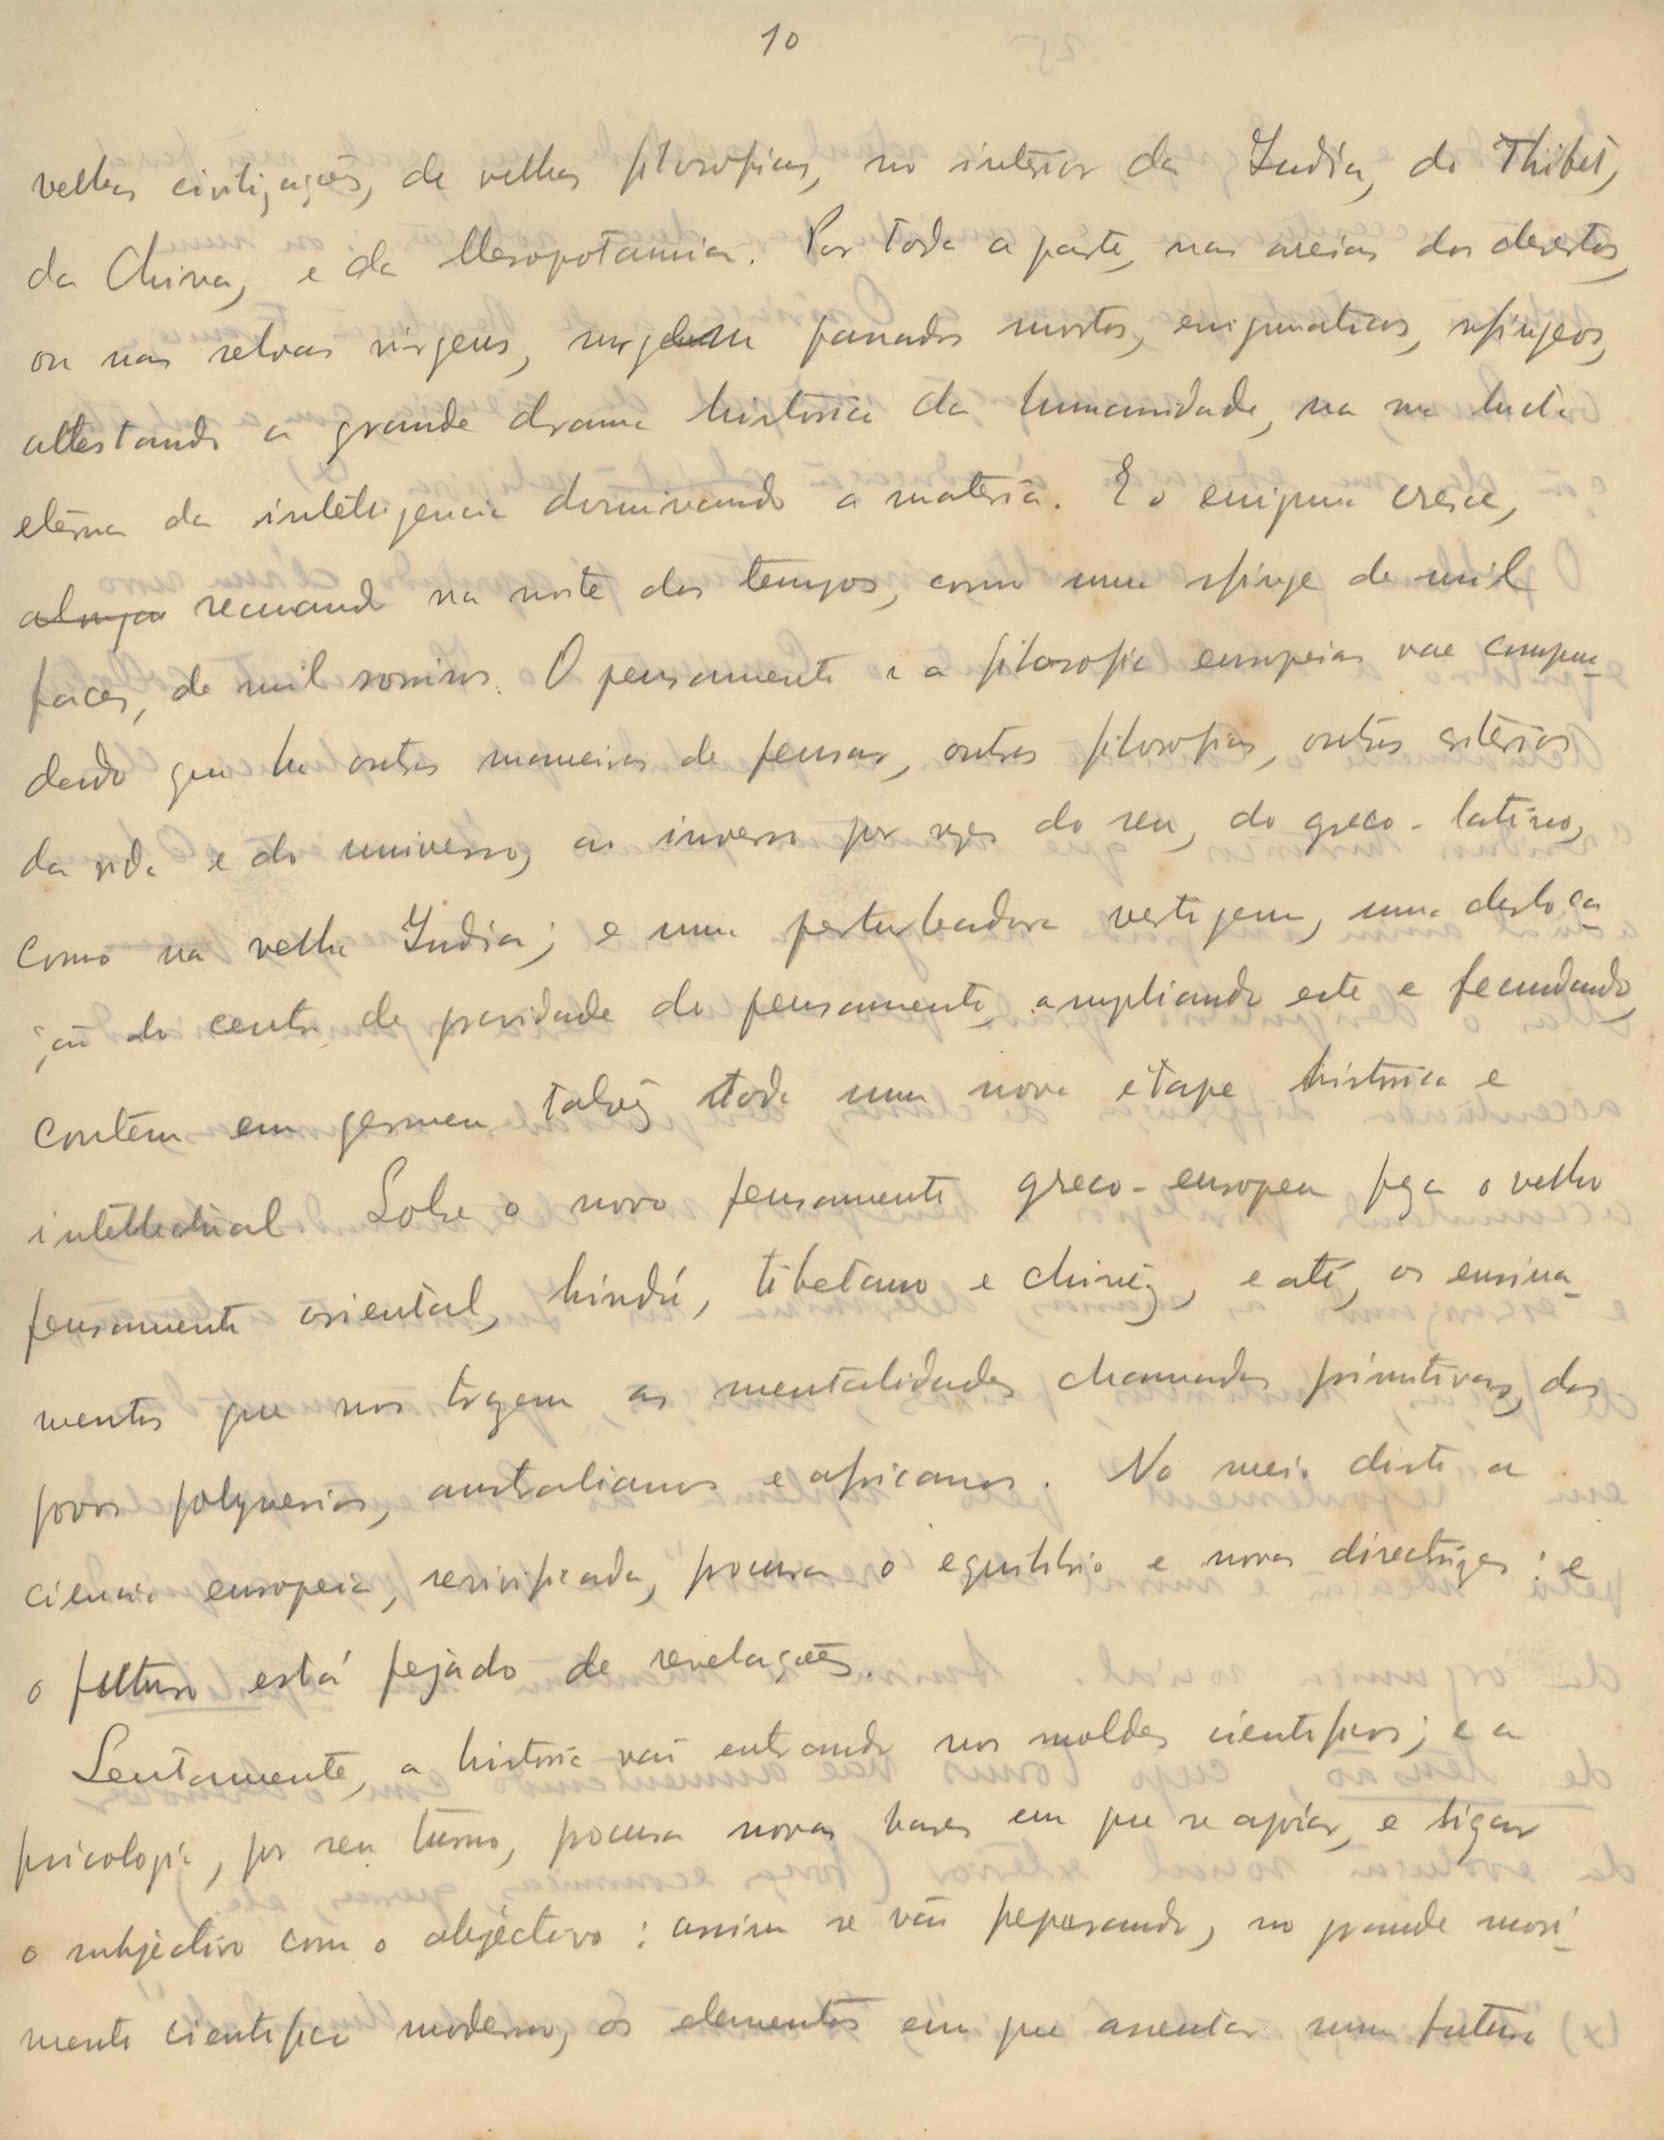 10
velhas civilizações, de velhas filosofias, no interior da India, do Thibet,
da China, e da Mesopotamia. Por toda a parte, nas areias dos desertos,
ou nas selvas virgens, surgem passados mortos, enigmaticos, esfingeos,
attestando o grande drama historico da humanidade, na sua lucta
eterna da intelligencia dominando a materia. E o enigma cresce,
recuando na noite dos tempos, como uma esfinge de mil
faces, de mil sorrisos. O pensamento e a filosofia europeias vae compen-
dendo que ha outras maneiras de pensar, outras filosofias, outros criterios
da vida e do universo, ao inverso por vezes do seu, do greco-latino,
como na velha India; e uma perturbadora vertigem, uma desloca-
ção do centro de gravidade do pensamento, ampliando este e fecundando,
contém em germen talvez toda uma nova étape historica e
intellectual. Sobre o novo pensamento greco-europeu pesa o velho
pensamento oriental, hindú, tibetano e chinêz, e até, os ensina-
mentos que nos trazem as mentalidades chamadas primitivas, dos
povos polynesios, australianos e africanos. No meio disto a
ciencia europeia, revivificada, procura o equilibrio e novas directrizes: e
o futuro está pejado de revelações.
Lentamente, a historia vai entrando nos moldes cientificos; e a
psicologia, por seu turno, procura novas bases em que se apoiar, e ligar
o subjectivo com o objectivo: assim se vão preparando, no grande movi-
mento cientifico moderno, os elementos em que assentar numa futura